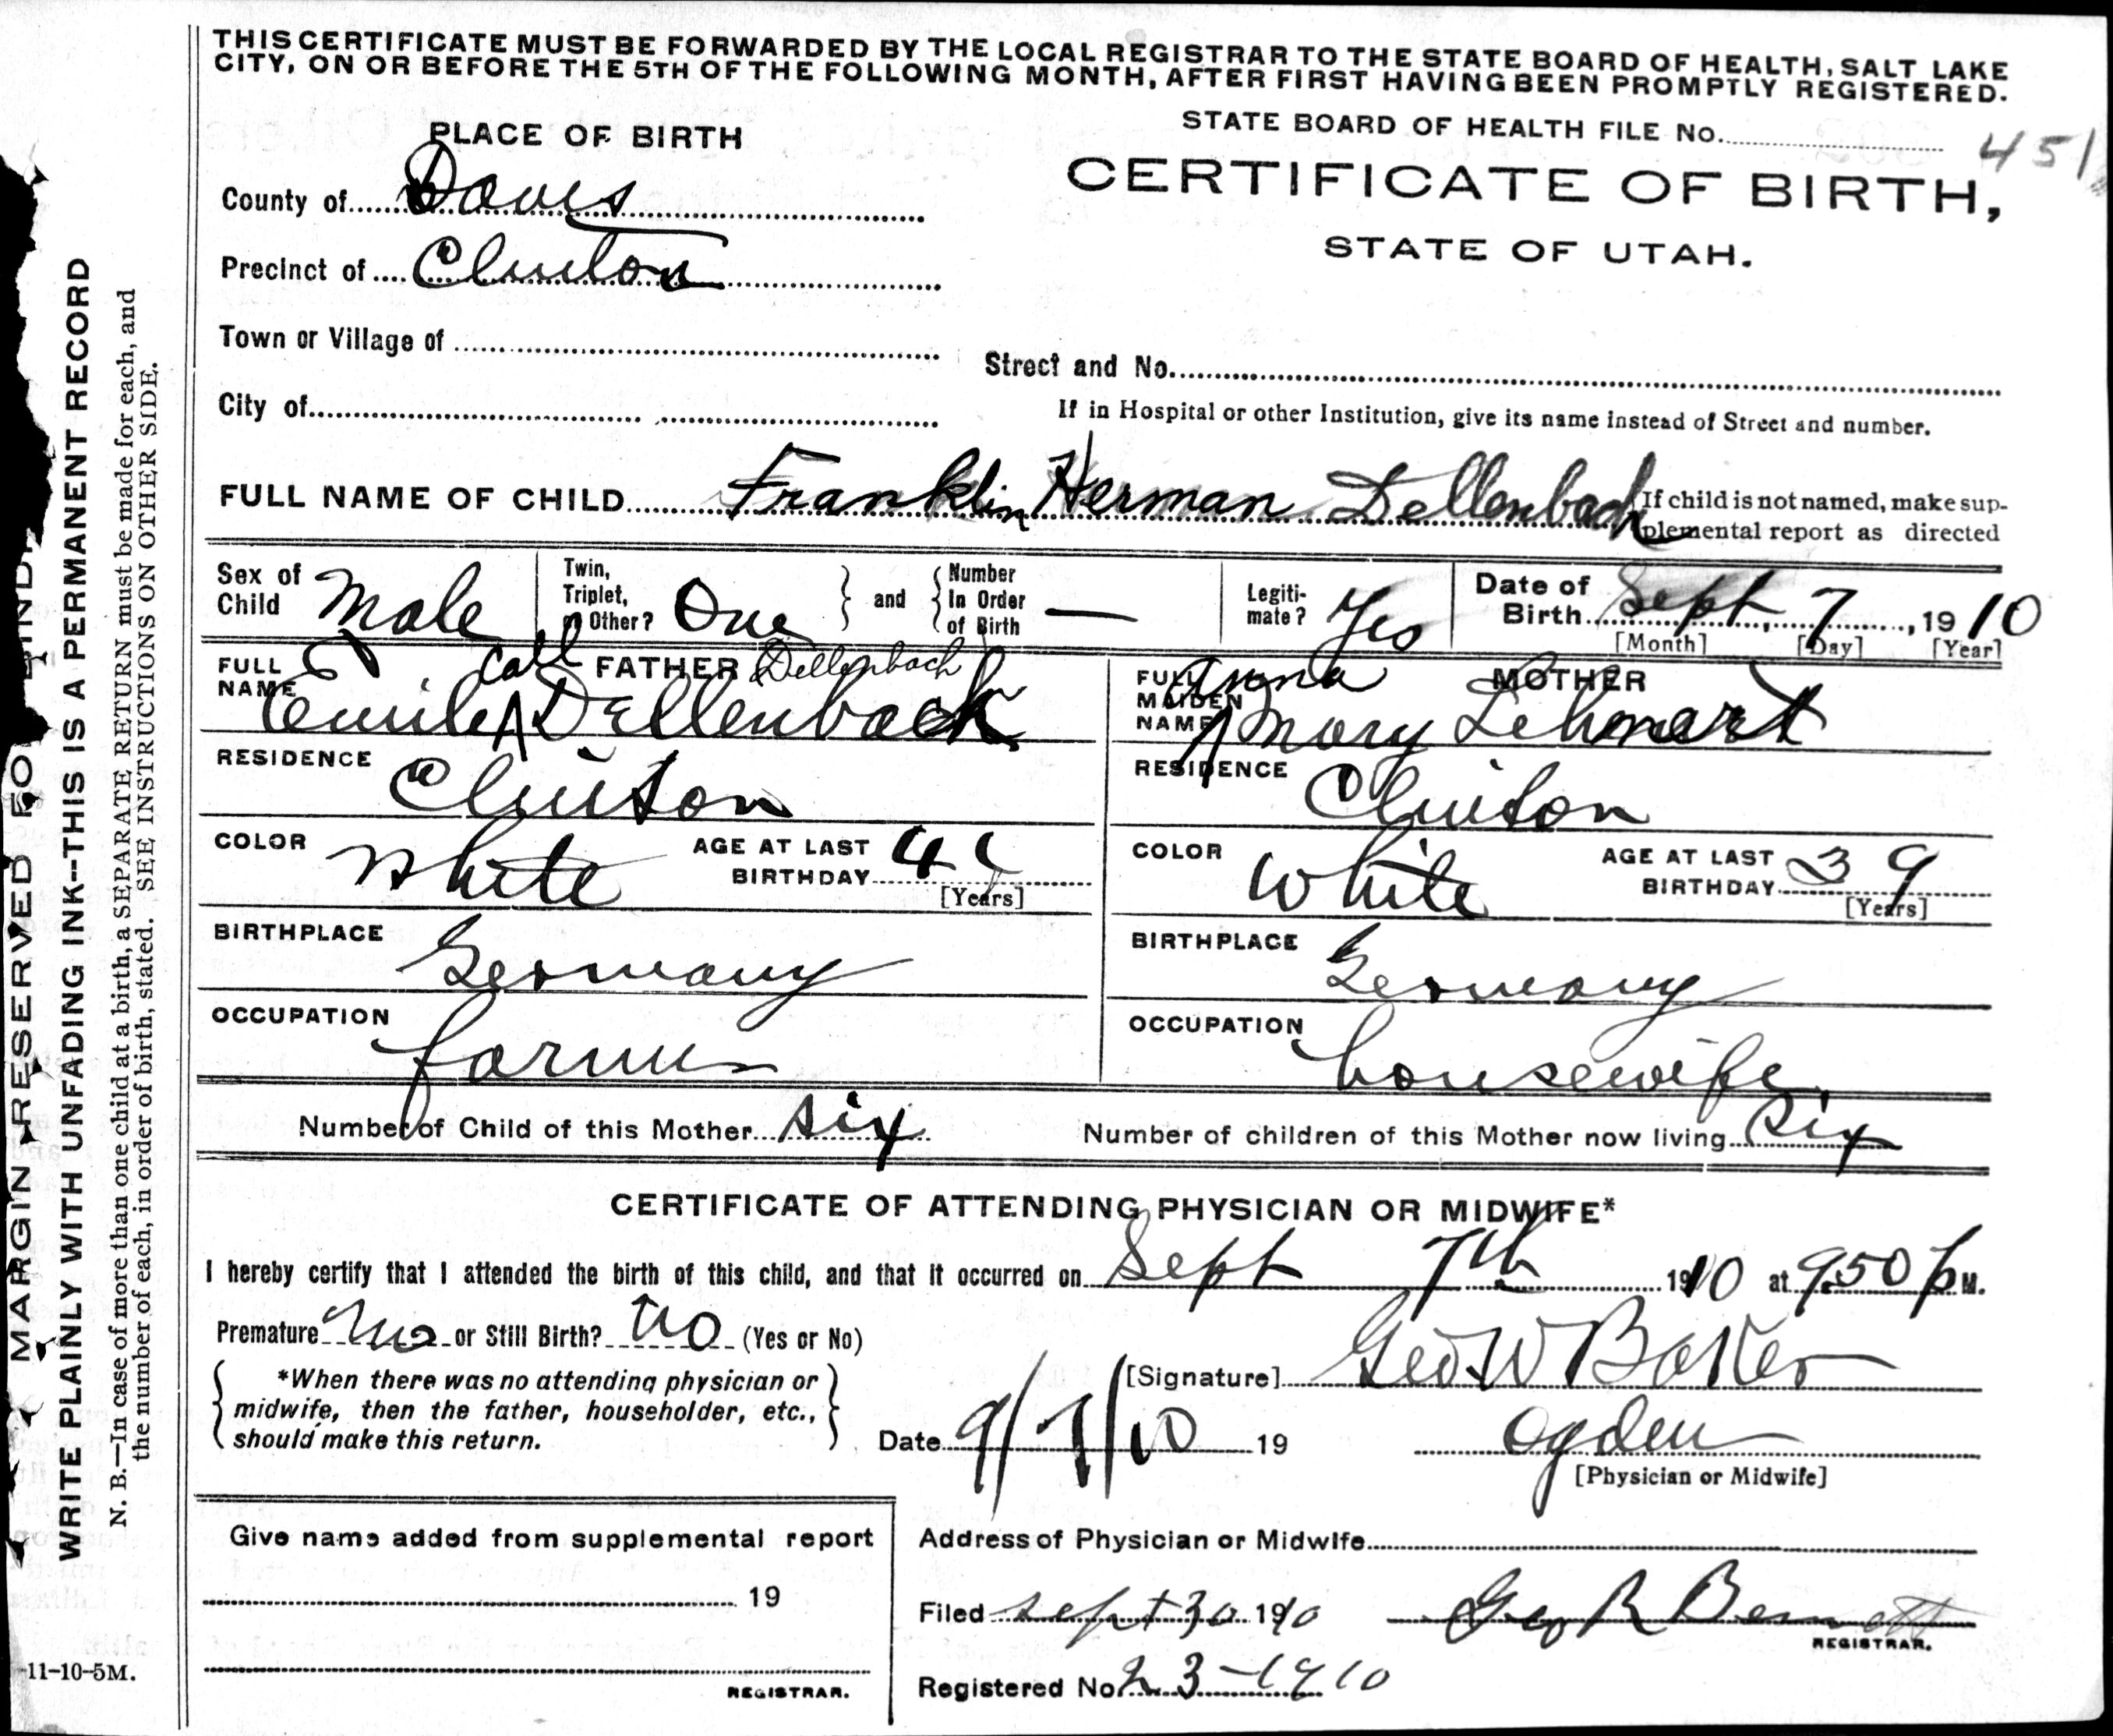 THIS CERTIFICATE MUST BE FORWARDED BY THE LOCAL REGISTRAR TO THE STATE BOARD OF HEALTH, SALT LAKE
CITY, ON OR BEFORE THE 5TH OF THE FOLLOWING MONTH, AFTER FIRST HAVING BEEN PROMPTLY REGISTERED.
STATE BOARD OF HEALTH FILE No. 451
PLACE OF BIRTH
CERTIFICATE OF BIRTH,
STATE OF UTAH.
County of Davis
Precinct of Clinton
Town or Village of
Street and No.
City of
If in Hospital or other Institution, give its name instead of Street and number.
FULL NAME OF CHILD Franklin Herman Dellenbach
If child is not named, make sup-
plemental report as directed
Sex of Child Male
Twin, Triplet, or Other? One
and Number In Order of Birth —
Legiti-mate? Yes
Date of Birth Sept 7, 1910
[Month] [Day] [Year]
FATHER
FULL NAME Emile Carl Dellenbach
Dellenbach
MOTHER
FULL MAIDEN NAME Anna Mary
RESIDENCE Clinton
RESIDENCE Clinton
COLOR White
AGE AT LAST BIRTHDAY
[Years]
COLOR White
AGE AT LAST BIRTHDAY 39
[Years]
BIRTHPLACE Germany
BIRTHPLACE Germany
OCCUPATION farmer
OCCUPATION housewife
Number of Child of this Mother six
Number of children of this Mother now living six
CERTIFICATE OF ATTENDING PHYSICIAN OR MIDWIFE*
I hereby certify that I attended the birth of this child, and that it occurred on Sept 7th 1910 at 9.50 P M.
Premature No or Still Birth? No (Yes or No)
*When there was no attending physician or
midwife, then the father, householder, etc.,
should make this return.
[Signature] Geo W Baker
Date 9/7/10 19
Ogden
[Physician or Midwife]
Give name added from supplemental report
19
REGISTRAR.
Address of Physician or Midwife
Filed Sept 30 1910
Geo R Bennett
REGISTRAR.
Registered No. 23-1910
11-10-5M.
MARGIN RESERVED FOR BINDI
WRITE PLAINLY WITH UNFADING INK--THIS IS A PERMANENT RECORD
N. B.—In case of more than one child at a birth, a SEPARATE RETURN must be made for each, and
the number of each, in order of birth, stated. SEE INSTRUCTIONS ON OTHER SIDE.